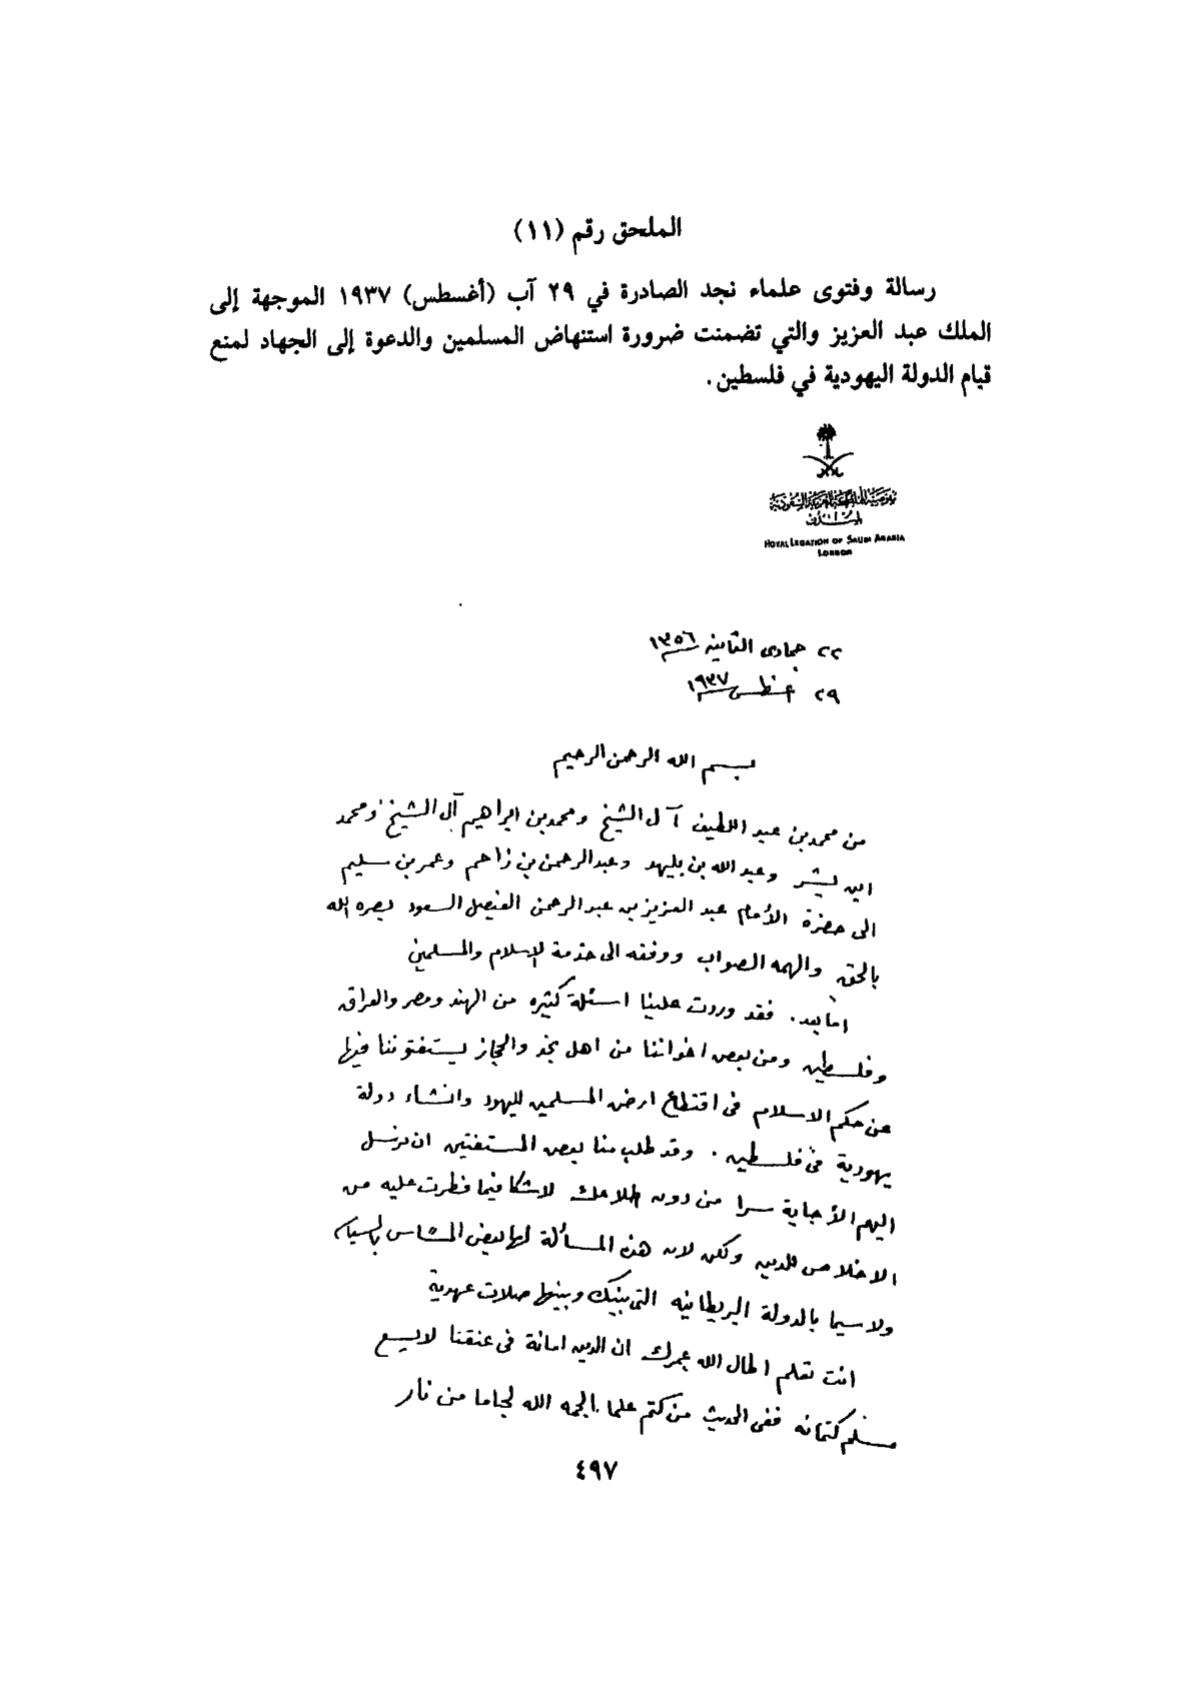 الملحق رقم (١١)
رسالة وفتوى علماء نجد الصادرة في ٢٩ آب (أغسطس) ١٩٣٧ الموجهة إلى
الملك عبد العزيز والتي تضمنت ضرورة استنهاض المسلمين والدعوة إلى الجهاد لمنع
قيام الدولة اليهودية في فلسطين.
المملكة العربية السعودية
ROYAL LEGATION OF SAUDI ARABIA
LONDON
٢٢ جمادى الثانيه ١٣٥٦
٢٩ ١٩٣٧
بسم الله الرحمن الرحيم
من محمد بن عبد اللطيف آل الشيخ ومحمد بن ابراهيم آل الشيخ ومحمد
ابن وعبد الله بن بليهد وعبد الرحمن بن زاحم وعمر بن سليم
الى حضرة الأمام عبد العزيز بن عبد الرحمن الفيصل السعود بصره الله
بالحق والهمه الصواب ووفقه الى خدمة الإسلام والمسلمين
اما بعد. فقد وردت علينا اسئلة كثيره من الهند ومصر والعراق
وفلسطين ومن بعض اخواننا من اهل نجد والحجاز يستفتوننا فيها
عن حكم الاسلام في اقتطاع ارض المسلمين لليهود وانشاء دولة
يهودية في فلسطين . وقد طلب منا بعض المستفتين ان نرسل
اليهم الأجابة سرا من دون لا شكا فيما فطرت عليه من
الاخلاص للدين ولكن لان هذه المسألة لها بعض المساس
ولا سيما بالدولة البريطانيه التي بينك وبينها صلات عهدية
انت تعلم اطال الله عمرك ان الدين امانة في عنقنا لا يسع
مسلم كتمانه ففي الحديث من كتم علما الجمه الله لجاما من نار
٤٩٧